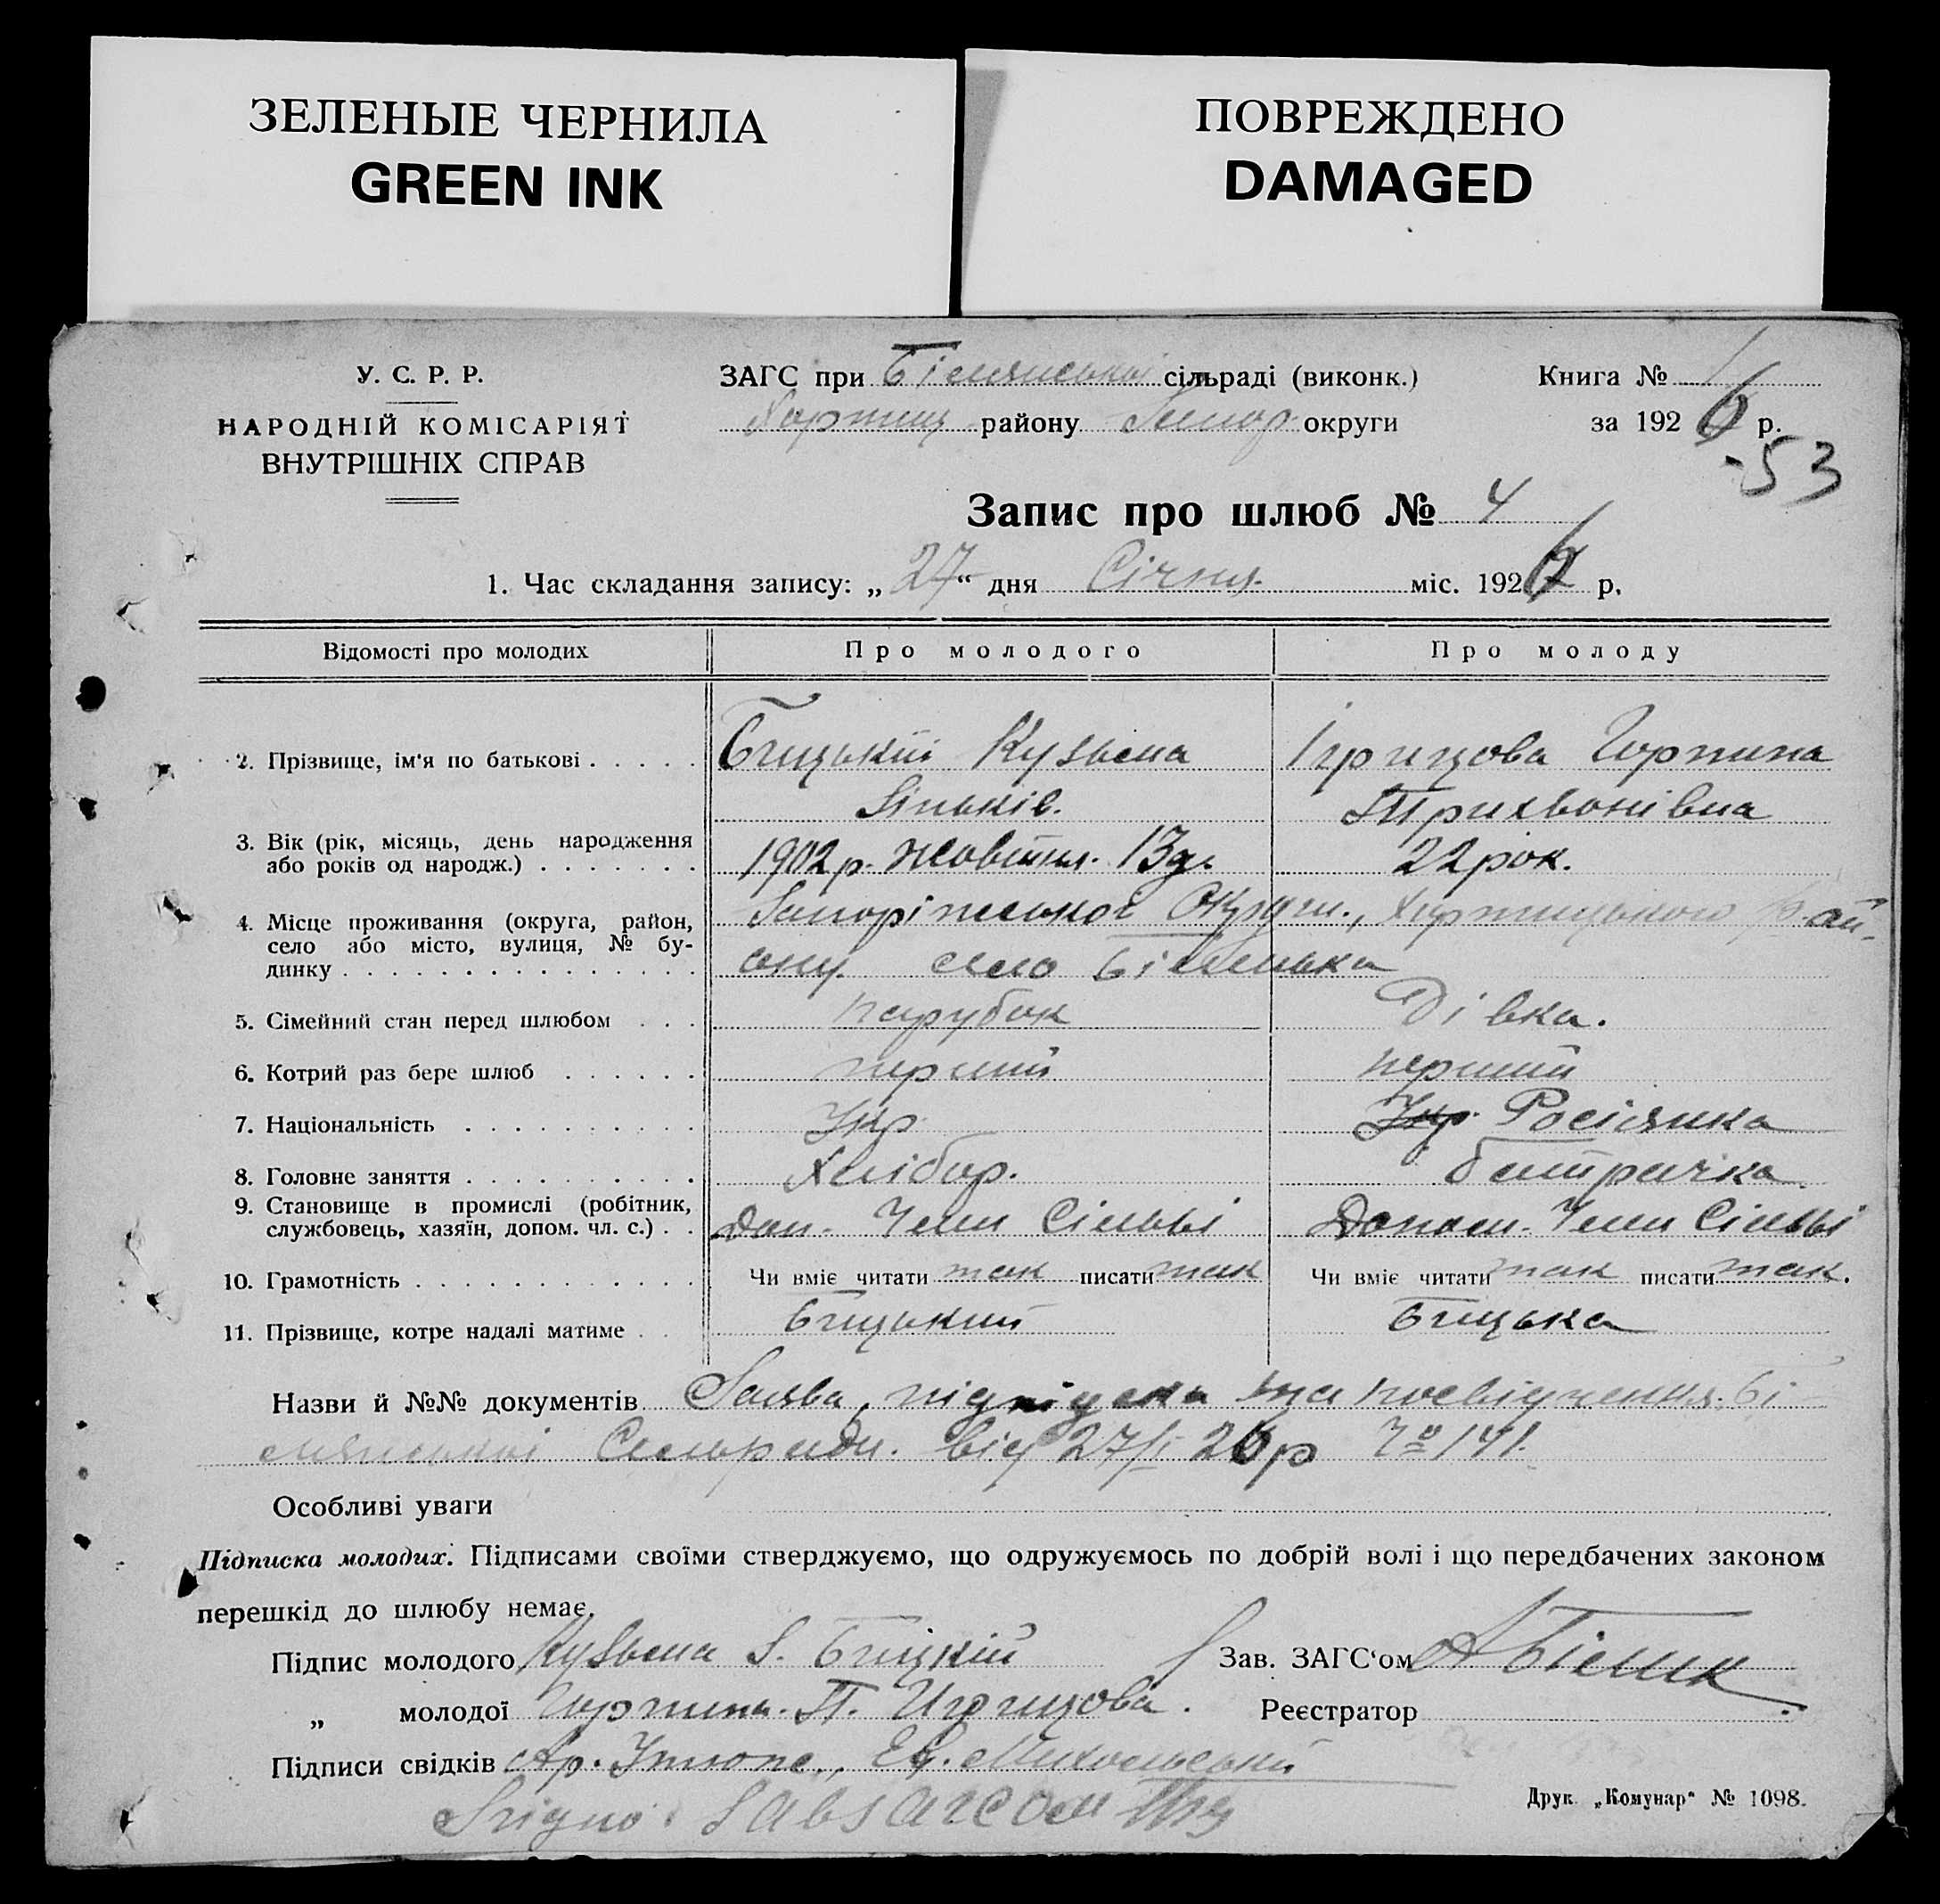 ЗЕЛЕНЫЕ ЧЕРНИЛА
GREEN INK
ПОВРЕЖДЕНО
DAMAGED
У. С. Р. Р.
НАРОДНІЙ КОМІСАРІЯТ
ВНУТРІШНІХ СПРАВ
ЗАГС при сільраді (виконк.)
Хортиц району Запор округи
Книга № 1
за 1926 р.
53
Запис про шлюб № 4
1. Час складання запису: „27“ дня Січня міс. 1926 р.
Відомості про молодих
Про молодого
Про молоду
2. Прізвище, ім'я по батькові
Кузьма
Ігрицова Горпина
Зіньків.
Трихвонівна
3. Вік (рік, місяць, день народження або років од народж.)
1902 р. жовтня. 13 д.
22 рок.
4. Місце проживання (округа, район, село або місто, вулиця, № будинку
Запоріжської Округи., Хортицького рай-
ону. село Біленька
5. Сімейний стан перед шлюбом
парубок
Дівка.
6. Котрий раз бере шлюб
перший
перший
7. Національність
Укр
Укр. Росіянка
8. Головне заняття
Хлібор.
батрачка
9. Становище в промислі (робітник, службовець, хазяїн, допом. чл. с.)
Доп. Член Сімьі
Допом. Член Сімьі
10. Грамотність
Чи вміє читати так писати так
Чи вміє читати так писати так.
11. Прізвище, котре надалі матиме
Назви й №№ документів Заява, підписка та посвідчення. Бі-
Сільради. від 27/I 26 р № 141.
Особливі уваги
Підписка молодих. Підписами своїми стверджуємо, що одружуємось по добрій волі і що передбачених законом
перешкід до шлюбу немає.
Підпис молодого Кузьма З.
Зав. ЗАГС‘ом А Білик
„ молодої Горпина. Т. Игрицова.
Реєстратор
Підписи свідків
Згідно: Завзагсом
Друк. „Комунар“ № 1098.